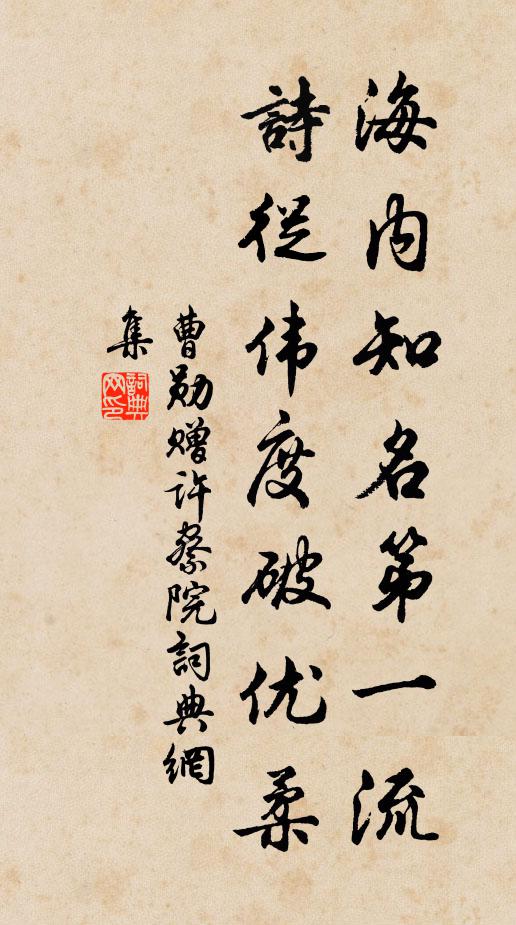 海内知名第一流
詩從伟度破优柔
曹勛赠许察院詞典網
集
詞典
网印